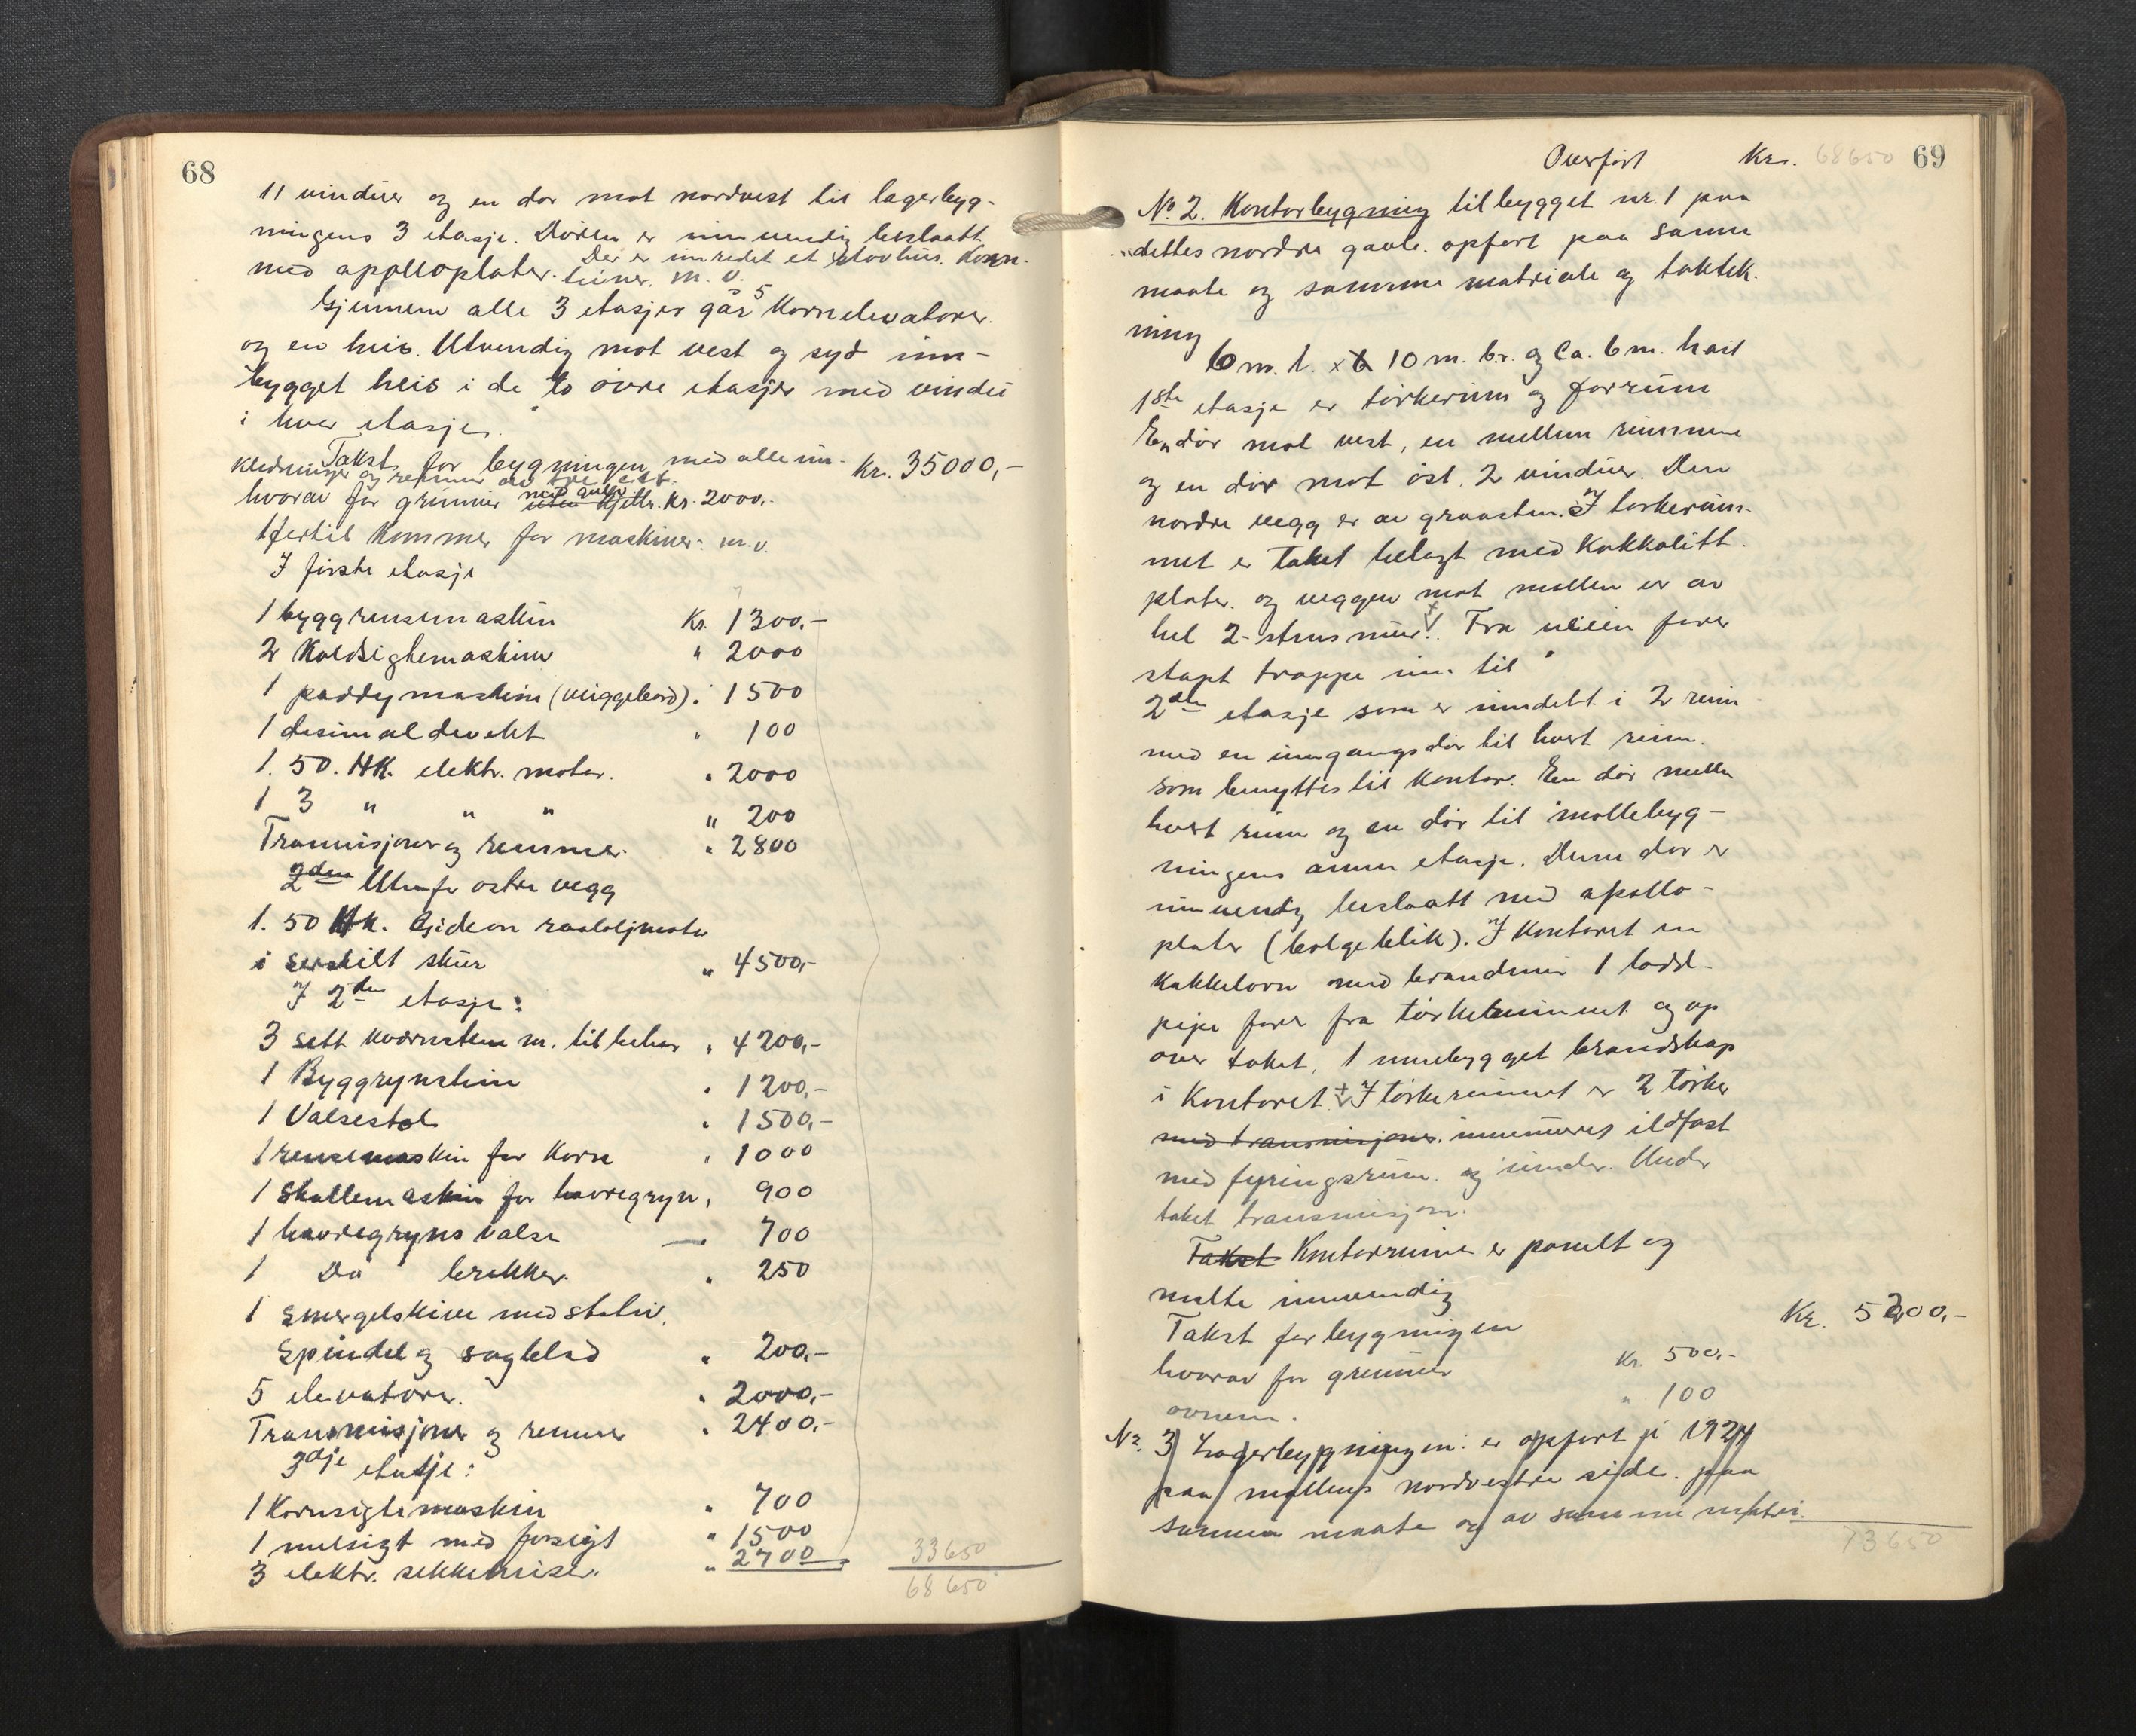 68
11 vinduer og en dør mot nordvest til lagerbyg-
ningens 3 etasje. Døren er innvendig beslaatt
med appolloplater. Der er innredet et støvhus. Korn-
biner. m.v.
Gjennem alle 3 etasjer går 5 Kornelevatorer
og en heis. Utvendig mot vest og syd inn-
bygget heis i de to øvre etasjer med vindu
i hver etasje.
Takst for bygningen med alle inn- Kr. 35000,-
kledninger og renner av tre
hvorav for grunnen uten kjell. Kr. 2000.-
Hertil kommer for maskiner: m.v.
I første etasje
1 byggrensemaskin Kr. 1300.-
2 Koldsigtemaskiner " 2000
1 paddymaskin (vuggebord) " 1500
1 desimaldevekt " 100
1. 50. HK. elektr. motor. " 2000
1 3 " " " " 200
Transmisjoner og remmer " 2800
2den Utenfor østre vegg
1. 50 HK. Gideon raaoljmotor
i serskilt skur " 4500,-
I 2den etasje:
3 sett kvernstene m. tilbehør " 4200,-
1 Byggrynstein " 1200,-
1 Valsestol " 1500,-
1 rensemaskin for Korn " 1000
1 Skallemaskin for havregryn " 900
1 havregryns valse — 700
1 Do brekker. " 250
1 Smergelskive med stativ,
Spindel og sagblad " 200,-
5 elevatorer. " 2000,-
Transmisjoner og remmer " 2400,-
3dje etasje:
1 Kornsigtemaskin " 700
1 melsigt med forsigt " 1500
3 elektr. sekkeheiser. " 2700 33650
68650
Overført Kr. 68650 69
No 2. Kontorbygning tilbygget nr. 1 paa
dettes nordre gavle. opført paa samme
maate og samme matriale og taktek-
ning
6 m. l. x 10 m. br. og ca. 6 m. høit
1ste etasje er tørkerum og forrum
En dør mot vest, en mellem rummene
og en dør mot øst. 2 vinduer. Den
nordre vegg er av graasten. I tørkerum-
met er taket belagt med Kokkolitt
plater. og veggen mot møllen er av
hel 2-stens mur. Fra veien fører
støpt trappe inn til
2den etasje som er inndelt i 2 rum
med en inngangsdør til hvert rum.
som benyttes til Kontor. En dør mellem
hvert rum og en dør til møllebyg-
ningens annen etasje. Denne dør er
innvendig beslaatt med apollo-
plater (bølgeblik). I Kontoret en
Kakkelovn med brandmur 1 lodd-
pipe fører fra tørkerummet og op
over taket. 1 innebygget brandskap
i Kontoret. I tørkerummet er 2 tørker
med transmisjoner. innmuret ildfast
med fyringsrum. og under. Under
taket transmisjon.
Takst Kontorrummene er panelt og
malte innvendig
Takst for bygningen Kr. 5200,-
hvorav for grunnen Kr. 500,-
ovnen. " 100
Nr. 3 Lagerbygningen: er opført i 1924
paa møllens nordvestre side. paa
samme maate og av samme matri.
73650